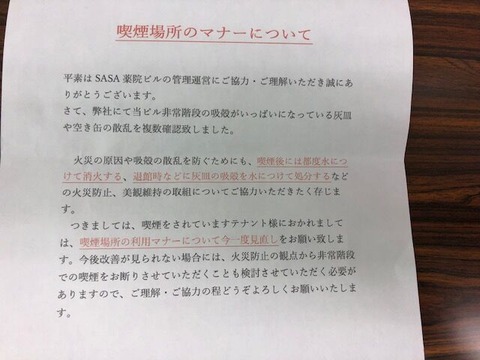 喫煙場所のマナーについて
平素は SASA 薬院ビルの管理運営にご協力・ご理解いただき誠にあ
りがとうございます。
さて、弊社にて当ビル非常階段の吸殻がいっぱいになっている灰皿
や空き缶の散乱を複数確認致しました。
火災の原因や吸殻の散乱を防ぐためにも、喫煙後には都度水につ
けて消火する、退館時などに灰皿の吸殻を水につけて処分するなど
の火災防止、美観維持の取組についてご協力いただきたく存じま
す。
つきましては、喫煙をされていますテナント様におかれまして
は、喫煙場所の利用マナーについて今一度見直しをお願い致しま
す。今後改善が見られない場合には、火災防止の観点から非常階段
での喫煙をお断りさせていただくことも検討させていただく必要が
ありますので、ご理解・ご協力の程どうぞよろしくお願いいたしま
す。